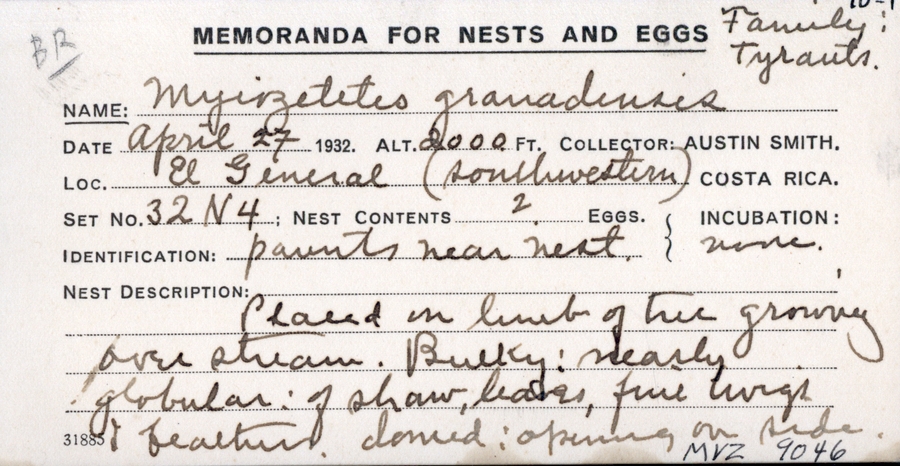 BR
MEMORANDA FOR NESTS AND EGGS
Family:
Tyrants.
NAME: Myiozetetes granadensis
DATE April 27 1932. ALT. 2000 FT. COLLECTOR: AUSTIN SMITH.
LOC. El General (southwestern) COSTA RICA.
SET NO. 32 N 4 ; NEST CONTENTS 2. EGGS. { INCUBATION:
IDENTIFICATION: parents near nest. } none.
NEST DESCRIPTION:
Placed on limb of tree growing
over stream. Bulky: nearly
globular: of straw, leaves, fine twigs
& feathers. domed: opening on side.
31885
MVZ 9046